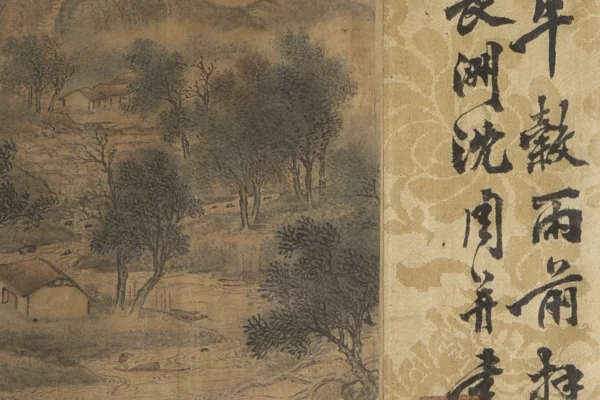 年穀雨前
長洲沈周并